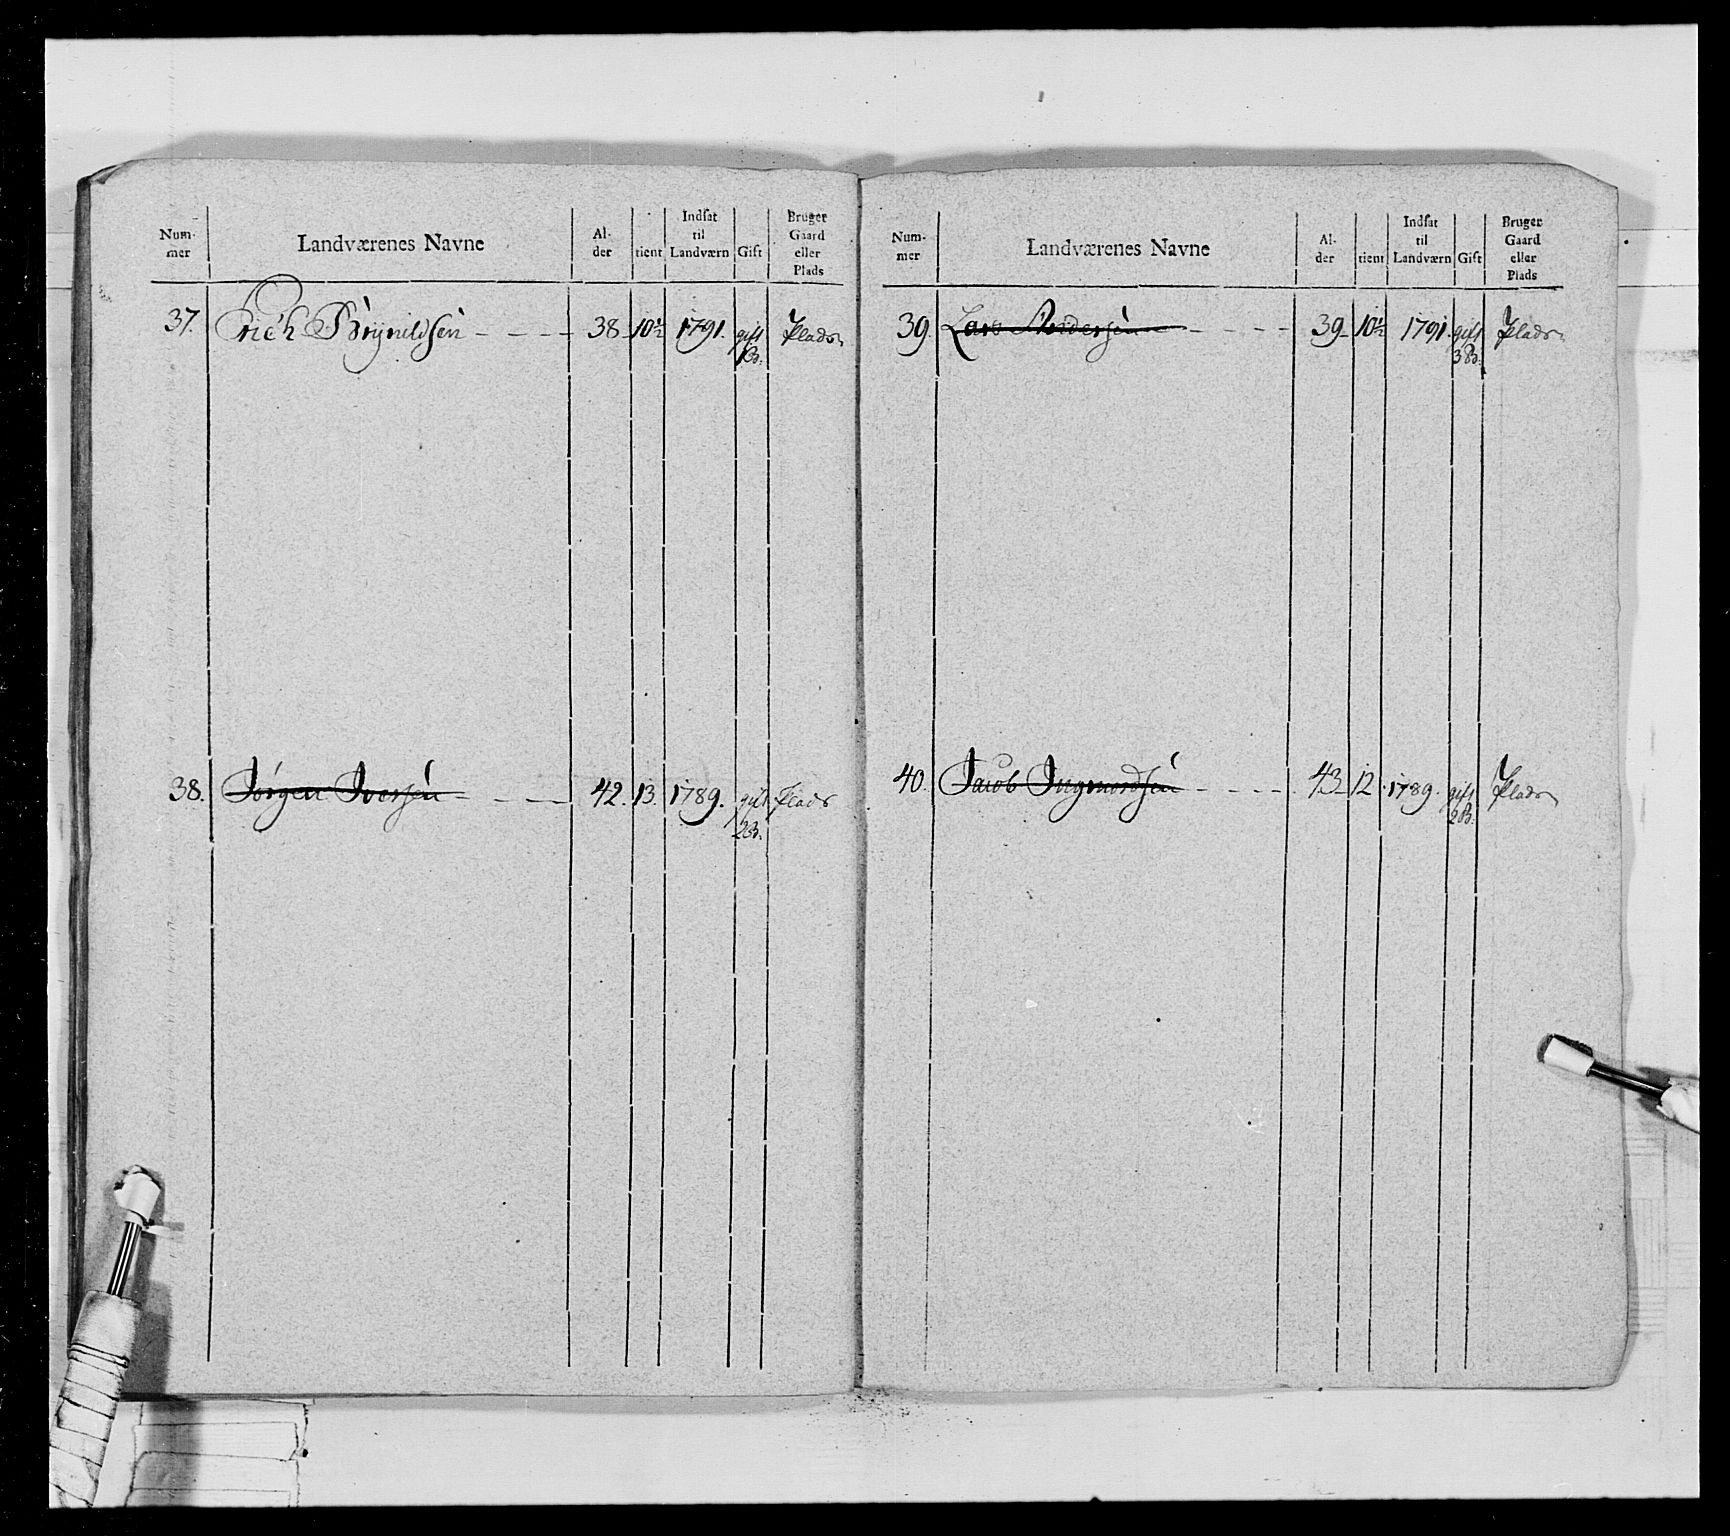 Num-
mer
Landværenes Navne
Al-
der
tient
Indsat
til
Landværn
Gift
Bruger
Gaard
eller
Plads
37. Erich Brynildsen 38 10½ 1791. gift Plads
B.
38. Jørgen Iversen 42. 13. 1789. gift Plads
2 B.
Num-
mer
Landværenes Navne
Al-
der
tient
Indsat
til
Landværn
Gift
Bruger
Gaard
eller
Plads
39. Lars Andersen 39 10½ 1791. gift Plads
3 B.
40. Jacob Ingmordsen 43 12. 1789. gift Plads
2 B.